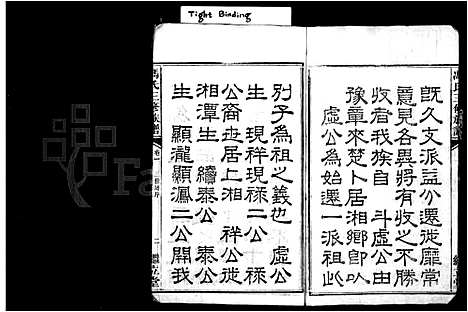 Tight Binding
既久支派益分遷徙靡常
意見各異將有收之不勝
收者我族自 斗虛公
豫章來楚卜居湘鄉即以
虛公為始遷一派祖此
別子為祖之義也 虛公
生 現祥現祿二公 祿
公裔世居上湘 祥公徙
湘潭生 續泰公 泰公
生 顯瀧顯 二公開我
馮氏三修族譜
卷一
二
堂